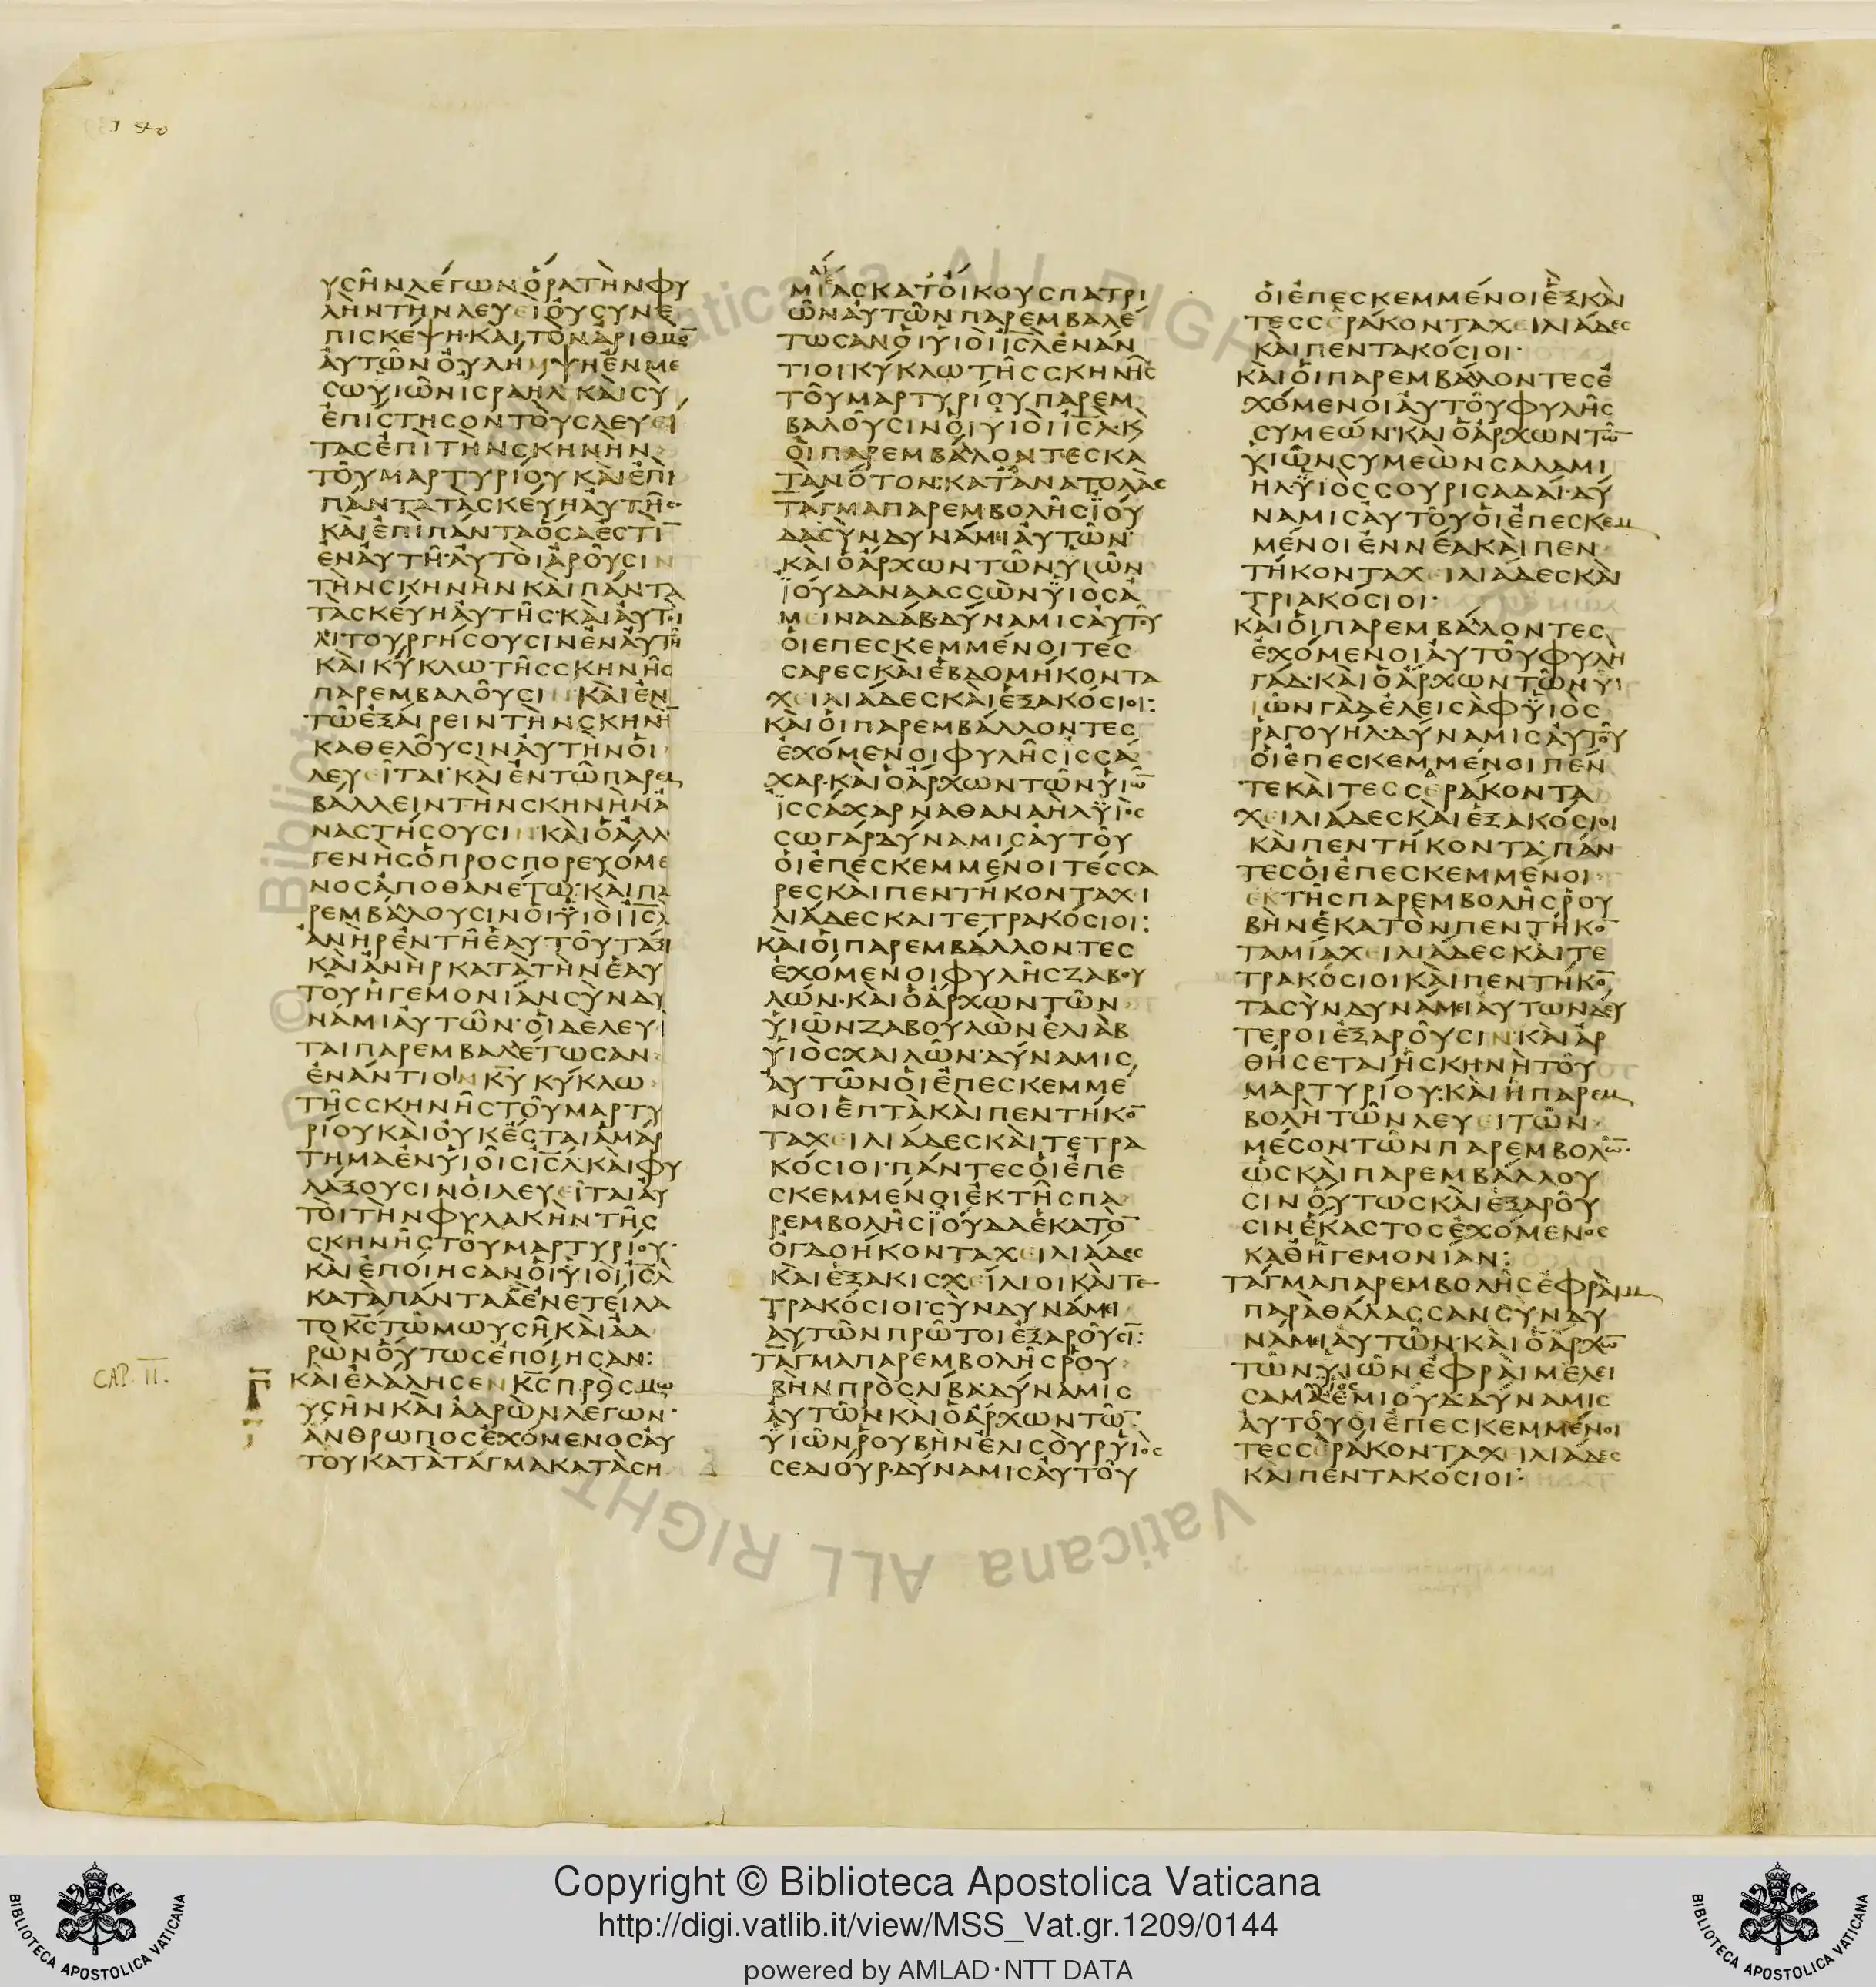 140
ΥϹΗΝΛΕΓΩΝΟΡΑΤΗΝΦΥ
ΛΗΝΤΗΝΛΕΥΕΙΟΥϹΥΝΕ
ΠΙϹΚΕΨΗ·ΚΑΙΤΟΝΑΡΙΘΜΟ̅
ΑΥΤΩΝΟΥΛΗΜΨΗΕΝΜΕ
ϹΩΥΙΩΝΙϹΡΑΗΛΚΑΙϹΥ
ΕΠΙϹΤΗϹΟΝΤΟΥϹΛΕΥΕΙ
ΤΑϹΕΠΙΤΗΝϹΚΗΝΗΝ
ΤΟΥΜΑΡΤΥΡΙΟΥΚΑΙΕΠΙ
ΠΑΝΤΑΤΑϹΚΕΥΗΑΥΤΗϹ·
ΚΑΙΕΠΙΠΑΝΤΑΟϹΑΕϹΤΙ̅
ΕΝΑΥΤΗ·ΑΥΤΟΙΑΡΟΥϹΙΝ
ΤΗΝϹΚΗΝΗΝΚΑΙΠΑΝΤΑ
ΤΑϹΚΕΥΗΑΥΤΗϹ·ΚΑΙΑΥΤΟΙ
ΛΙΤΟΥΡΓΗϹΟΥϹΙΝΕΝΑΥΤΗ
ΚΑΙΚΥΚΛΩΤΗϹϹΚΗΝΗϹ
ΠΑΡΕΜΒΑΛΟΥϹΙΝ·ΚΑΙΕΝ
ΤΩΕΞΑΙΡΕΙΝΤΗΝϹΚΗΝΗ̅
ΚΑΘΕΛΟΥϹΙΝΑΥΤΗΝΟΙ
ΛΕΥΕΙΤΑΙ·ΚΑΙΕΝΤΩΠΑΡΕΜ
ΒΑΛΛΕΙΝΤΗΝϹΚΗΝΗΝΑ
ΝΑϹΤΗϹΟΥϹΙΝ·ΚΑΙΟΑΛΛΟ
ΓΕΝΗϹΟΠΡΟϹΠΟΡΕΥΟΜΕ
ΝΟϹΑΠΟΘΑΝΕΤΩ·ΚΑΙΠΑ
ΡΕΜΒΑΛΟΥϹΙΝΟΙΥΙΟΙΙϹ̅Λ
ΑΝΗΡΕΝΤΗΕΑΥΤΟΥΤΑΞΙ
ΚΑΙΑΝΗΡΚΑΤΑΤΗΝΕΑΥ
ΤΟΥΗΓΕΜΟΝΙΑΝϹΥΝΔΥ
ΝΑΜΙΑΥΤΩΝ·ΟΙΔΕΛΕΥΙ
ΤΑΙΠΑΡΕΜΒΑΛΕΤΩϹΑΝ
ΕΝΑΝΤΙΟΝΚ̅Υ̅ΚΥΚΛΩ
ΤΗϹϹΚΗΝΗϹΤΟΥΜΑΡΤΥ
ΡΙΟΥΚΑΙΟΥΚΕϹΤΑΙΑΜΑΡ
ΤΗΜΑΕΝΥΙΟΙϹΙϹ̅Λ·ΚΑΙΦΥ
ΛΑΞΟΥϹΙΝΟΙΛΕΥΕΙΤΑΙΑΥ
ΤΟΙΤΗΝΦΥΛΑΚΗΝΤΗϹ
ϹΚΗΝΗϹΤΟΥΜΑΡΤΥΡΙΟΥ·
ΚΑΙΕΠΟΙΗϹΑΝΟΙΥΙΟΙΙϹ̅Λ
ΚΑΤΑΠΑΝΤΑΑΕΝΕΤΕΙΛΑ
ΤΟΚ̅Ϲ̅ΤΩΜΩΥϹΗΚΑΙΑΑ
ΡΩΝΟΥΤΩϹΕΠΟΙΗϹΑΝ:
CAP. II.
Γ̅
ΚΑΙΕΛΑΛΗϹΕΝΚ̅Ϲ̅ΠΡΟϹΜΩ
ΥϹΗΝΚΑΙΑΑΡΩΝΛΕΓΩΝ·
ΑΝΘΡΩΠΟϹΕΧΟΜΕΝΟϹΑΥ
ΤΟΥΚΑΤΑΤΑΓΜΑΚΑΤΑϹΗ
ΜΙΑϹΚΑΤΟΙΚΟΥϹΠΑΤΡΙ
ΩΝΑΥΤΩΝΠΑΡΕΜΒΑΛΕ
ΤΩϹΑΝΟΙΥΙΟΙΙϹ̅ΛΕΝΑΝ
ΤΙΟΙΚΥΚΛΩΤΗϹϹΚΗΝΗϹ
ΤΟΥΜΑΡΤΥΡΙΟΥΠΑΡΕΜ
ΒΑΛΟΥϹΙΝΟΙΥΙΟΙΙϹ̅Λ·Κ
ΟΙΠΑΡΕΜΒΑΛΟΝΤΕϹΚΑ
ΤΑΝΟΤΟΝ:ΚΑΤΑΝΑΤΟΛΑϹ
ΤΑΓΜΑΠΑΡΕΜΒΟΛΗϹΙΟΥ
ΔΑϹΥΝΔΥΝΑΜΕΙΑΥΤΩΝ·
ΚΑΙΟΑΡΧΩΝΤΩΝΥΙΩΝ
ΙΟΥΔΑΝΑΑϹϹΩΝΥΙΟϹΑ
ΜΕΙΝΑΔΑΒ·ΔΥΝΑΜΙϹΑΥΤΟΥ
ΟΙΕΠΕϹΚΕΜΜΕΝΟΙΤΕϹ
ϹΑΡΕϹΚΑΙΕΒΔΟΜΗΚΟΝΤΑ
ΧΕΙΛΙΑΔΕϹΚΑΙΕΞΑΚΟϹΙΟΙ:
ΚΑΙΟΙΠΑΡΕΜΒΑΛΛΟΝΤΕϹ
ΕΧΟΜΕΝΟΙΦΥΛΗϹΙϹϹΑ
ΧΑΡ·ΚΑΙΟΑΡΧΩΝΤΩΝΥΙΩ̅
ΙϹϹΑΧΑΡΝΑΘΑΝΑΗΛΥΙΟϹ
ϹΩΓΑΡ·ΔΥΝΑΜΙϹΑΥΤΟΥ
ΟΙΕΠΕϹΚΕΜΜΕΝΟΙΤΕϹϹΑ
ΡΕϹΚΑΙΠΕΝΤΗΚΟΝΤΑΧΙ
ΛΙΑΔΕϹΚΑΙΤΕΤΡΑΚΟϹΙΟΙ:
ΚΑΙΟΙΠΑΡΕΜΒΑΛΛΟΝΤΕϹ
ΕΧΟΜΕΝΟΙΦΥΛΗϹΖΑΒΟΥ
ΛΩΝ·ΚΑΙΟΑΡΧΩΝΤΩΝ
ΥΙΩΝΖΑΒΟΥΛΩΝΕΛΙΑΒ
ΥΙΟϹΧΑΙΛΩΝ·ΔΥΝΑΜΙϹ
ΑΥΤΩΝΟΙΕΠΕϹΚΕΜΜΕ
ΝΟΙΕΠΤΑΚΑΙΠΕΝΤΗΚΟ̅
ΤΑΧΕΙΛΙΑΔΕϹΚΑΙΤΕΤΡΑ
ΚΟϹΙΟΙ·ΠΑΝΤΕϹΟΙΕΠΕ
ϹΚΕΜΜΕΝΟΙΕΚΤΗϹΠΑ
ΡΕΜΒΟΛΗϹΙΟΥΔΑΕΚΑΤΟ̅
ΟΓΔΟΗΚΟΝΤΑΧΕΙΛΙΑΔΕϹ
ΚΑΙΕΞΑΚΙϹΧΕΙΛΙΟΙΚΑΙΤΕ
ΤΡΑΚΟϹΙΟΙ·ϹΥΝΔΥΝΑΜΕΙ
ΑΥΤΩΝΠΡΩΤΟΙΕΞΑΡΟΥϹΙ̅:
ΤΑΓΜΑΠΑΡΕΜΒΟΛΗϹΡΟΥ
ΒΗΝΠΡΟϹΛΙΒΑ·ΔΥΝΑΜΙϹ
ΑΥΤΩΝΚΑΙΟΑΡΧΩΝΤΩ̅
ΥΙΩΝΡΟΥΒΗΝΕΛΙϹΟΥΡΥΙΟϹ
ϹΕΔΙΟΥΡ·ΔΥΝΑΜΙϹΑΥΤΟΥ
ΟΙΕΠΕϹΚΕΜΜΕΝΟΙΕΞΚΑΙ
ΤΕϹϹΕΡΑΚΟΝΤΑΧΕΙΛΙΑΔΕϹ
ΚΑΙΠΕΝΤΑΚΟϹΙΟΙ·
ΚΑΙΟΙΠΑΡΕΜΒΑΛΛΟΝΤΕϹΕ
ΧΟΜΕΝΟΙΑΥΤΟΥΦΥΛΗϹ
ϹΥΜΕΩΝ·ΚΑΙΟΑΡΧΩΝΤΩ̅
ΥΙΩΝϹΥΜΕΩΝϹΑΛΑΜΙ
ΗΛΥΙΟϹϹΟΥΡΙϹΑΔΑΙ·ΔΥ
ΝΑΜΙϹΑΥΤΟΥΟΙΕΠΕϹΚΕΜ
ΜΕΝΟΙΕΝΝΕΑΚΑΙΠΕΝ
ΤΗΚΟΝΤΑΧΕΙΛΙΑΔΕϹΚΑΙ
ΤΡΙΑΚΟϹΙΟΙ·
ΚΑΙΟΙΠΑΡΕΜΒΑΛΟΝΤΕϹ
ΕΧΟΜΕΝΟΙΑΥΤΟΥΦΥΛΗ
ΓΑΔ·ΚΑΙΟΑΡΧΩΝΤΩΝΥΙ
ΙΩΝΓΑΔΕΛΕΙϹΑΦΥΙΟϹ
ΡΑΓΟΥΗΛ·ΔΥΝΑΜΙϹΑΥΤΟΥ
ΟΙΕΠΕϹΚΕΜΜΕΝΟΙΠΕΝ
ΤΕΚΑΙΤΕϹϹΕΡΑΚΟΝΤΑ
ΧΕΙΛΙΑΔΕϹΚΑΙΕΞΑΚΟϹΙΟΙ
ΚΑΙΠΕΝΤΗΚΟΝΤΑ·ΠΑΝ
ΤΕϹΟΙΕΠΕϹΚΕΜΜΕΝΟΙ
ΕΚΤΗϹΠΑΡΕΜΒΟΛΗϹΡΟΥ
ΒΗΝΕΚΑΤΟΝΠΕΝΤΗΚΟ̅
ΤΑΜΙΑΧΕΙΛΙΑΔΕϹΚΑΙΤΕ
ΤΡΑΚΟϹΙΟΙΚΑΙΠΕΝΤΗΚΟ̅
ΤΑϹΥΝΔΥΝΑΜΕΙΑΥΤΩΝΔΕΥ
ΤΕΡΟΙΕΞΑΡΟΥϹΙΝ·ΚΑΙΑΡ
ΘΗϹΕΤΑΙΗϹΚΗΝΗΤΟΥ
ΜΑΡΤΥΡΙΟΥ·ΚΑΙΗΠΑΡΕΜ
ΒΟΛΗΤΩΝΛΕΥΕΙΤΩΝ
ΜΕϹΟΝΤΩΝΠΑΡΕΜΒΟΛΩ̅·
ΩϹΚΑΙΠΑΡΕΜΒΑΛΛΟΥ
ϹΙΝΟΥΤΩϹΚΑΙΕΞΑΡΟΥ
ϹΙΝΕΚΑϹΤΟϹΕΧΟΜΕΝΟϹ
ΚΑΘΗΓΕΜΟΝΙΑΝ:
ΤΑΓΜΑΠΑΡΕΜΒΟΛΗϹΕΦΡΑΙΜ
ΠΑΡΑΘΑΛΑϹϹΑΝϹΥΝΔΥ
ΝΑΜΕΙΑΥΤΩΝ·ΚΑΙΟΑΡΧΩ̅
ΤΩΝΥΙΩΝΕΦΡΑΙΜΕΛΕΙ
ϹΑΜΑΥΙΟϹΕΜΙΟΥΔ·ΔΥΝΑΜΙϹ
ΑΥΤΟΥΟΙΕΠΕϹΚΕΜΜΕΝΟΙ
ΤΕϹϹΕΡΑΚΟΝΤΑΧΕΙΛΙΑΔΕϹ
ΚΑΙΠΕΝΤΑΚΟϹΙΟΙ:
Copyright © Biblioteca Apostolica Vaticana
http://digi.vatlib.it/view/MSS_Vat.gr.1209/0144
powered by AMLAD·NTT DATA
BIBLIOTECA APOSTOLICA VATICANA
BIBLIOTECA APOSTOLICA VATICANA